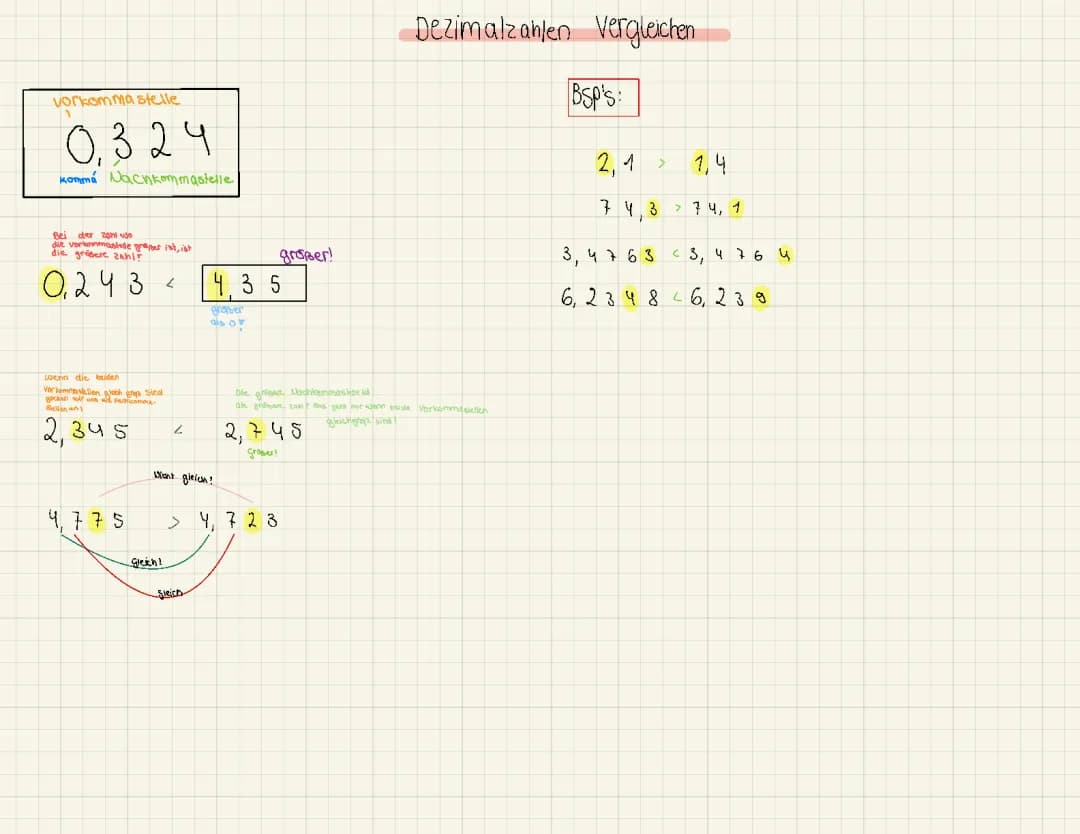 Dezimalzahlen Vergleichen
Vorkommastelle
0,324
Komma Nachkommastelle
Bei der Zahl wo
die Vorkommastelle größer ist, ist
die größere Zahl!
größer!
0,243 < 4,35
größer
als 0!
Wenn die beiden
Vorkommastellen gleich groß sind
wir uns die Nachkomma-
stellen an!
Die größere Nachkommastelle ist
die größere Zahl! Das geht nur wenn beide Vorkommastellen
gleichgroß sind!
2,345 < 2,745
größer!
Nicht gleich!
4,775 > 4,723
Gleich!
gleich
Bsp's:
2,1 > 1,4
74,3 > 74,1
3,4763 < 3,4764
6,2348 < 6,239